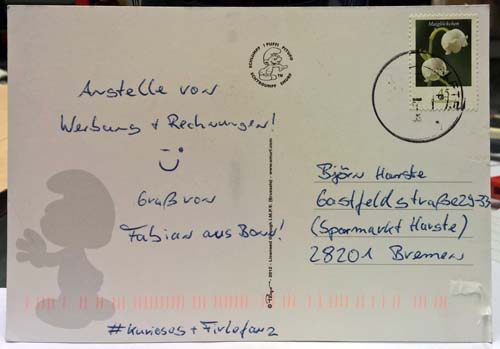 Maiglöckchen
45
SCHLUMPF I PUFFI PITUFO
SCHTROUMPF SMURF
Anstelle von
Werbung + Rechnungen!
Gruß von
Fabian aus Bonn!
#Kurioses + Firlefanz
Björn Harste
Gastfeldstraße 29-33
(Sparmarkt Harste)
28201 Bremen
© Peyo - 2012 - Licensed through I.M.P.S. (Brussels) - www.smurf.com